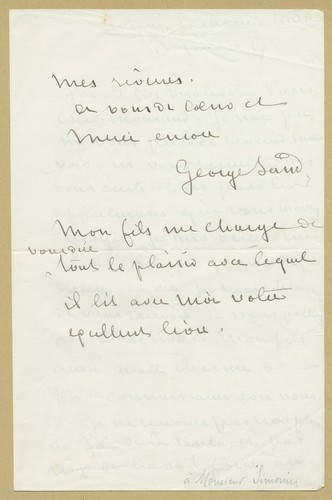 mes rêveries.
à vous de cœur et
merci encore
George Sand
Mon fils me charge de
vous dire
tout le plaisir avec lequel
il lit avec moi votre
excellent livre.
à Monsieur Simonin